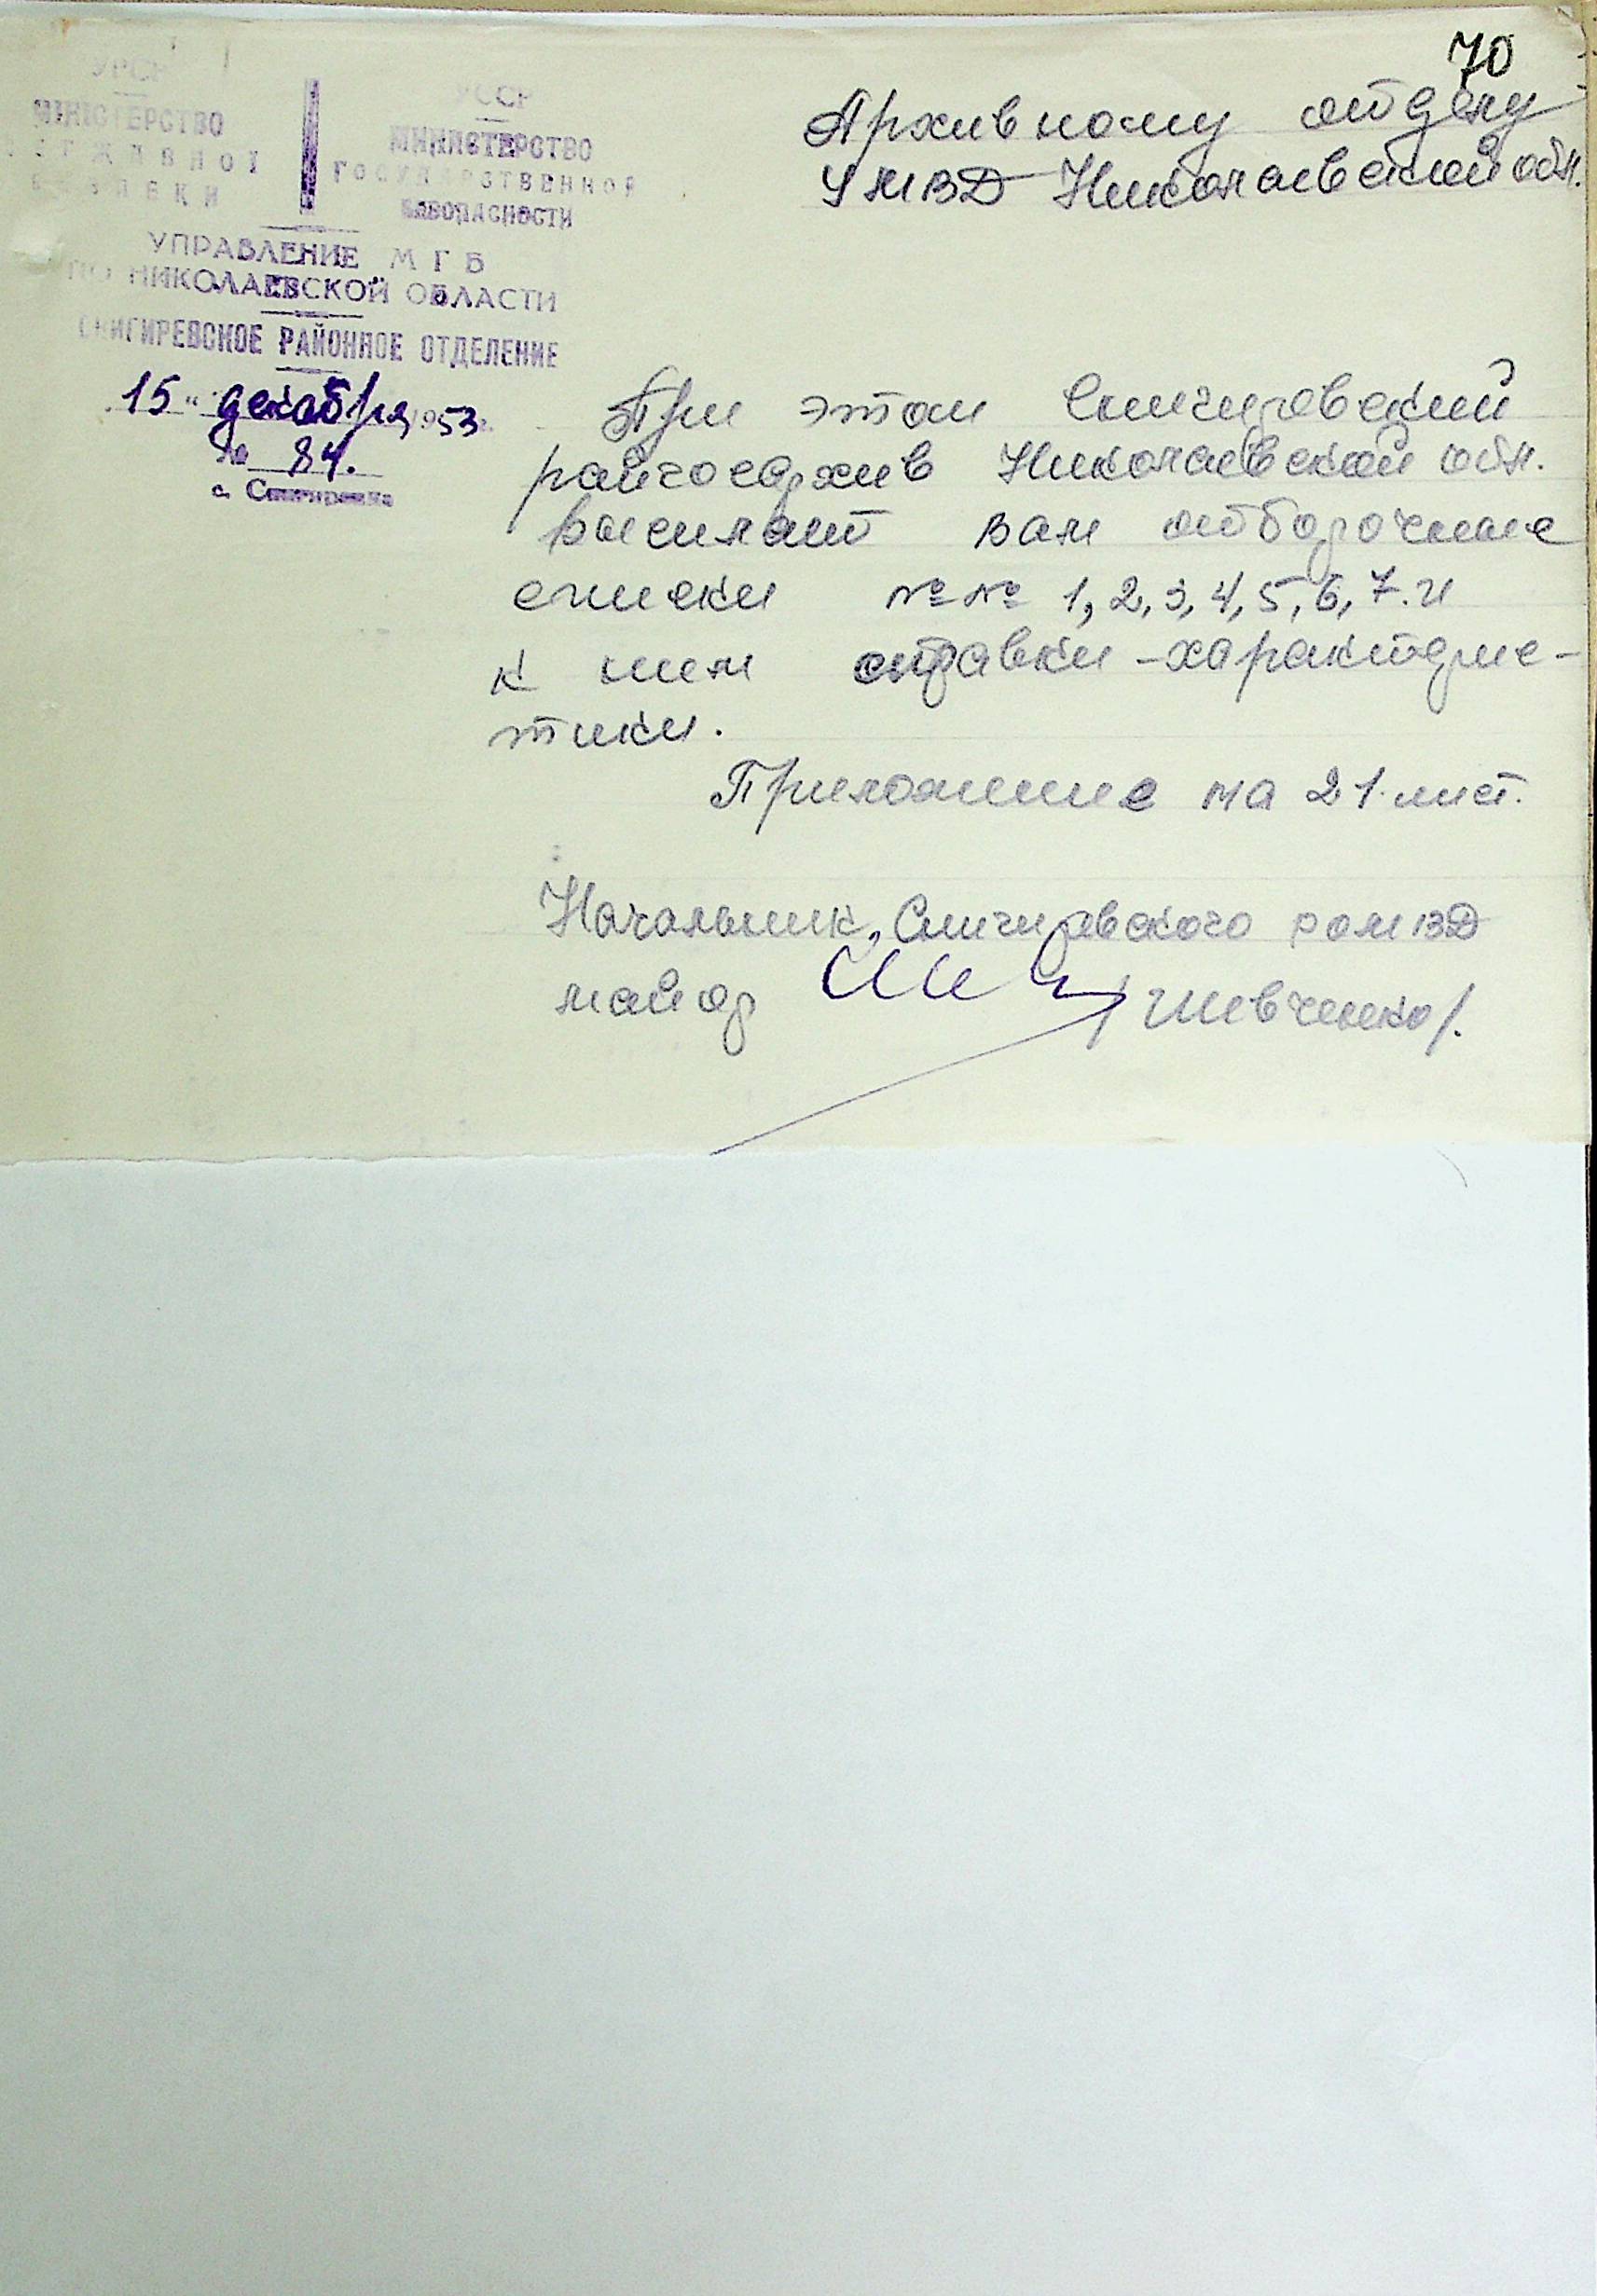 70
УРСР
МІНІСТЕРСТВО
ДЕРЖАВНОЇ
БЕЗПЕКИ
УССР
МИНИСТЕРСТВО
ГОСУДАРСТВЕННОЙ
БЕЗОПАСНОСТИ
УПРАВЛЕНИЕ МГБ
ПО НИКОЛАЕВСКОЙ ОБЛАСТИ
СНИГИРЕВСКОЕ РАЙОННОЕ ОТДЕЛЕНИЕ
15 " декабря 1953
№ 84.
с. Снигиревка
Архивному отделу
УМВД Николаевской обл.
При этом Снигиревский
райгосархив Николаевской обл.
высилает вам отборочные
списки №№ 1, 2, 3, 4, 5, 6, 7. и
к ним справки-характерис-
тики.
Приложение на 21 лист.
Начальник Снигиревского РОМВД
майор /Шевченко/.